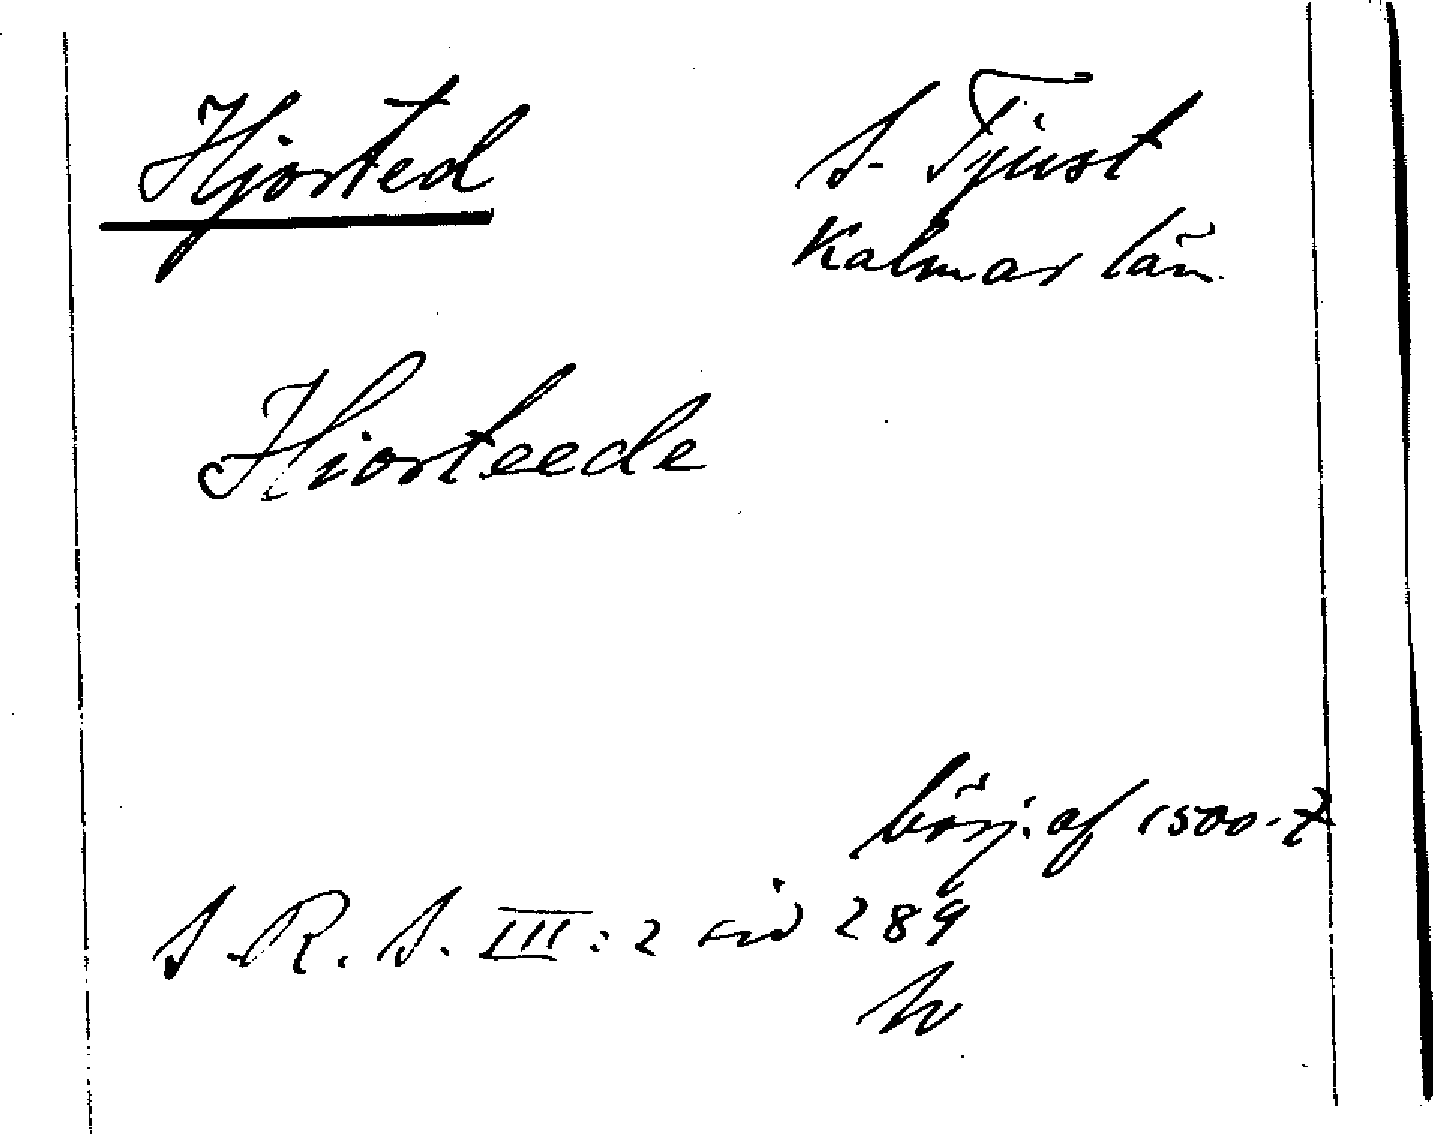 Hjorted
S. Tjust
Kalmar län
Hiorteede
börj. af 1500-t
S.R.S. III:2 sid 289